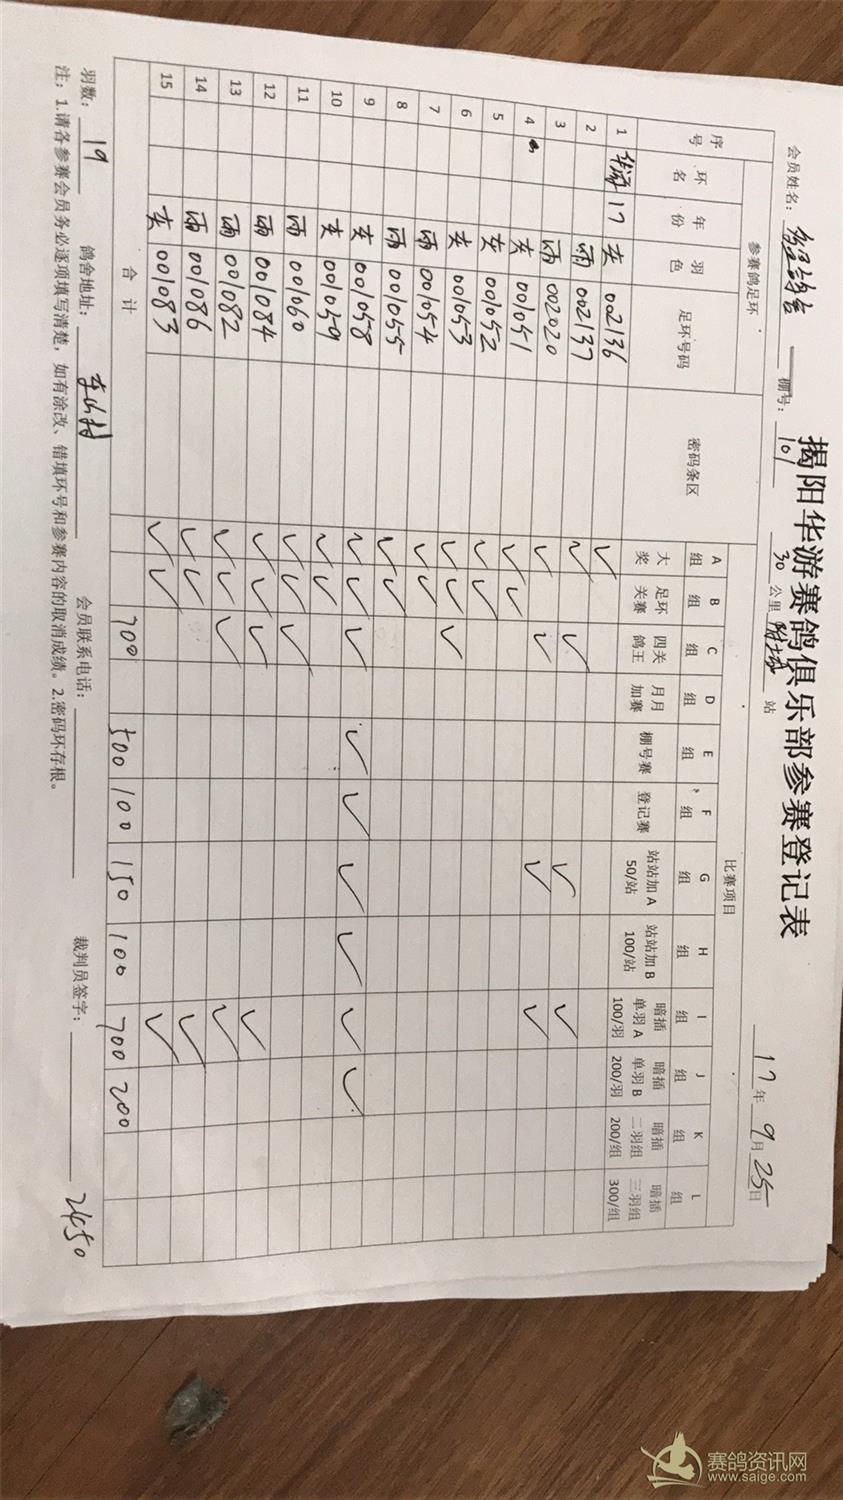 揭阳华游赛鸽俱乐部参赛登记表
会员姓名： 棚号：101 30公里 附城 站 17年9月25日
参赛鸽足环 密码条区 比赛项目
序号 环名 年份 羽色 足环号码 A组 B组 C组 D组 E组 F组 G组 H组 I组 J组 K组 L组
大奖 足环关赛 四关鸽王 月月加赛 棚号赛 登记赛 站站加A 50/站 站站加B 100/站 暗插单羽A 100/羽 暗插单羽B 200/羽 暗插二羽组 200/组 暗插三羽组 300/组
1 华游 17 灰 002136 ✓
2 雨 002137 ✓ ✓
3 雨 002020 ✓ ✓ ✓ ✓
4 灰 001051 ✓ ✓ ✓ ✓
5 灰 001052 ✓ ✓
6 灰 001053 ✓ ✓ ✓
7 雨 001054 ✓ ✓
8 雨 001055 ✓ ✓
9 灰 001058 ✓ ✓ ✓ ✓ ✓ ✓ ✓ ✓ ✓
10 灰 001059 ✓ ✓
11 雨 001060 ✓ ✓ ✓
12 雨 001084 ✓ ✓ ✓ ✓
13 雨 001082 ✓ ✓ ✓ ✓
14 雨 001086 ✓ ✓ ✓
15 灰 001083 ✓ ✓ ✓
合计 700 500 100 150 100 700 200
羽数：19 鸽舍地址： 会员联系电话： 裁判员签字： 2450
注：1.请各参赛会员务必逐项填写清楚，如有涂改、错填环号和参赛内容的取消成绩。2.密码环存根。
赛鸽资讯网
www.saige.com